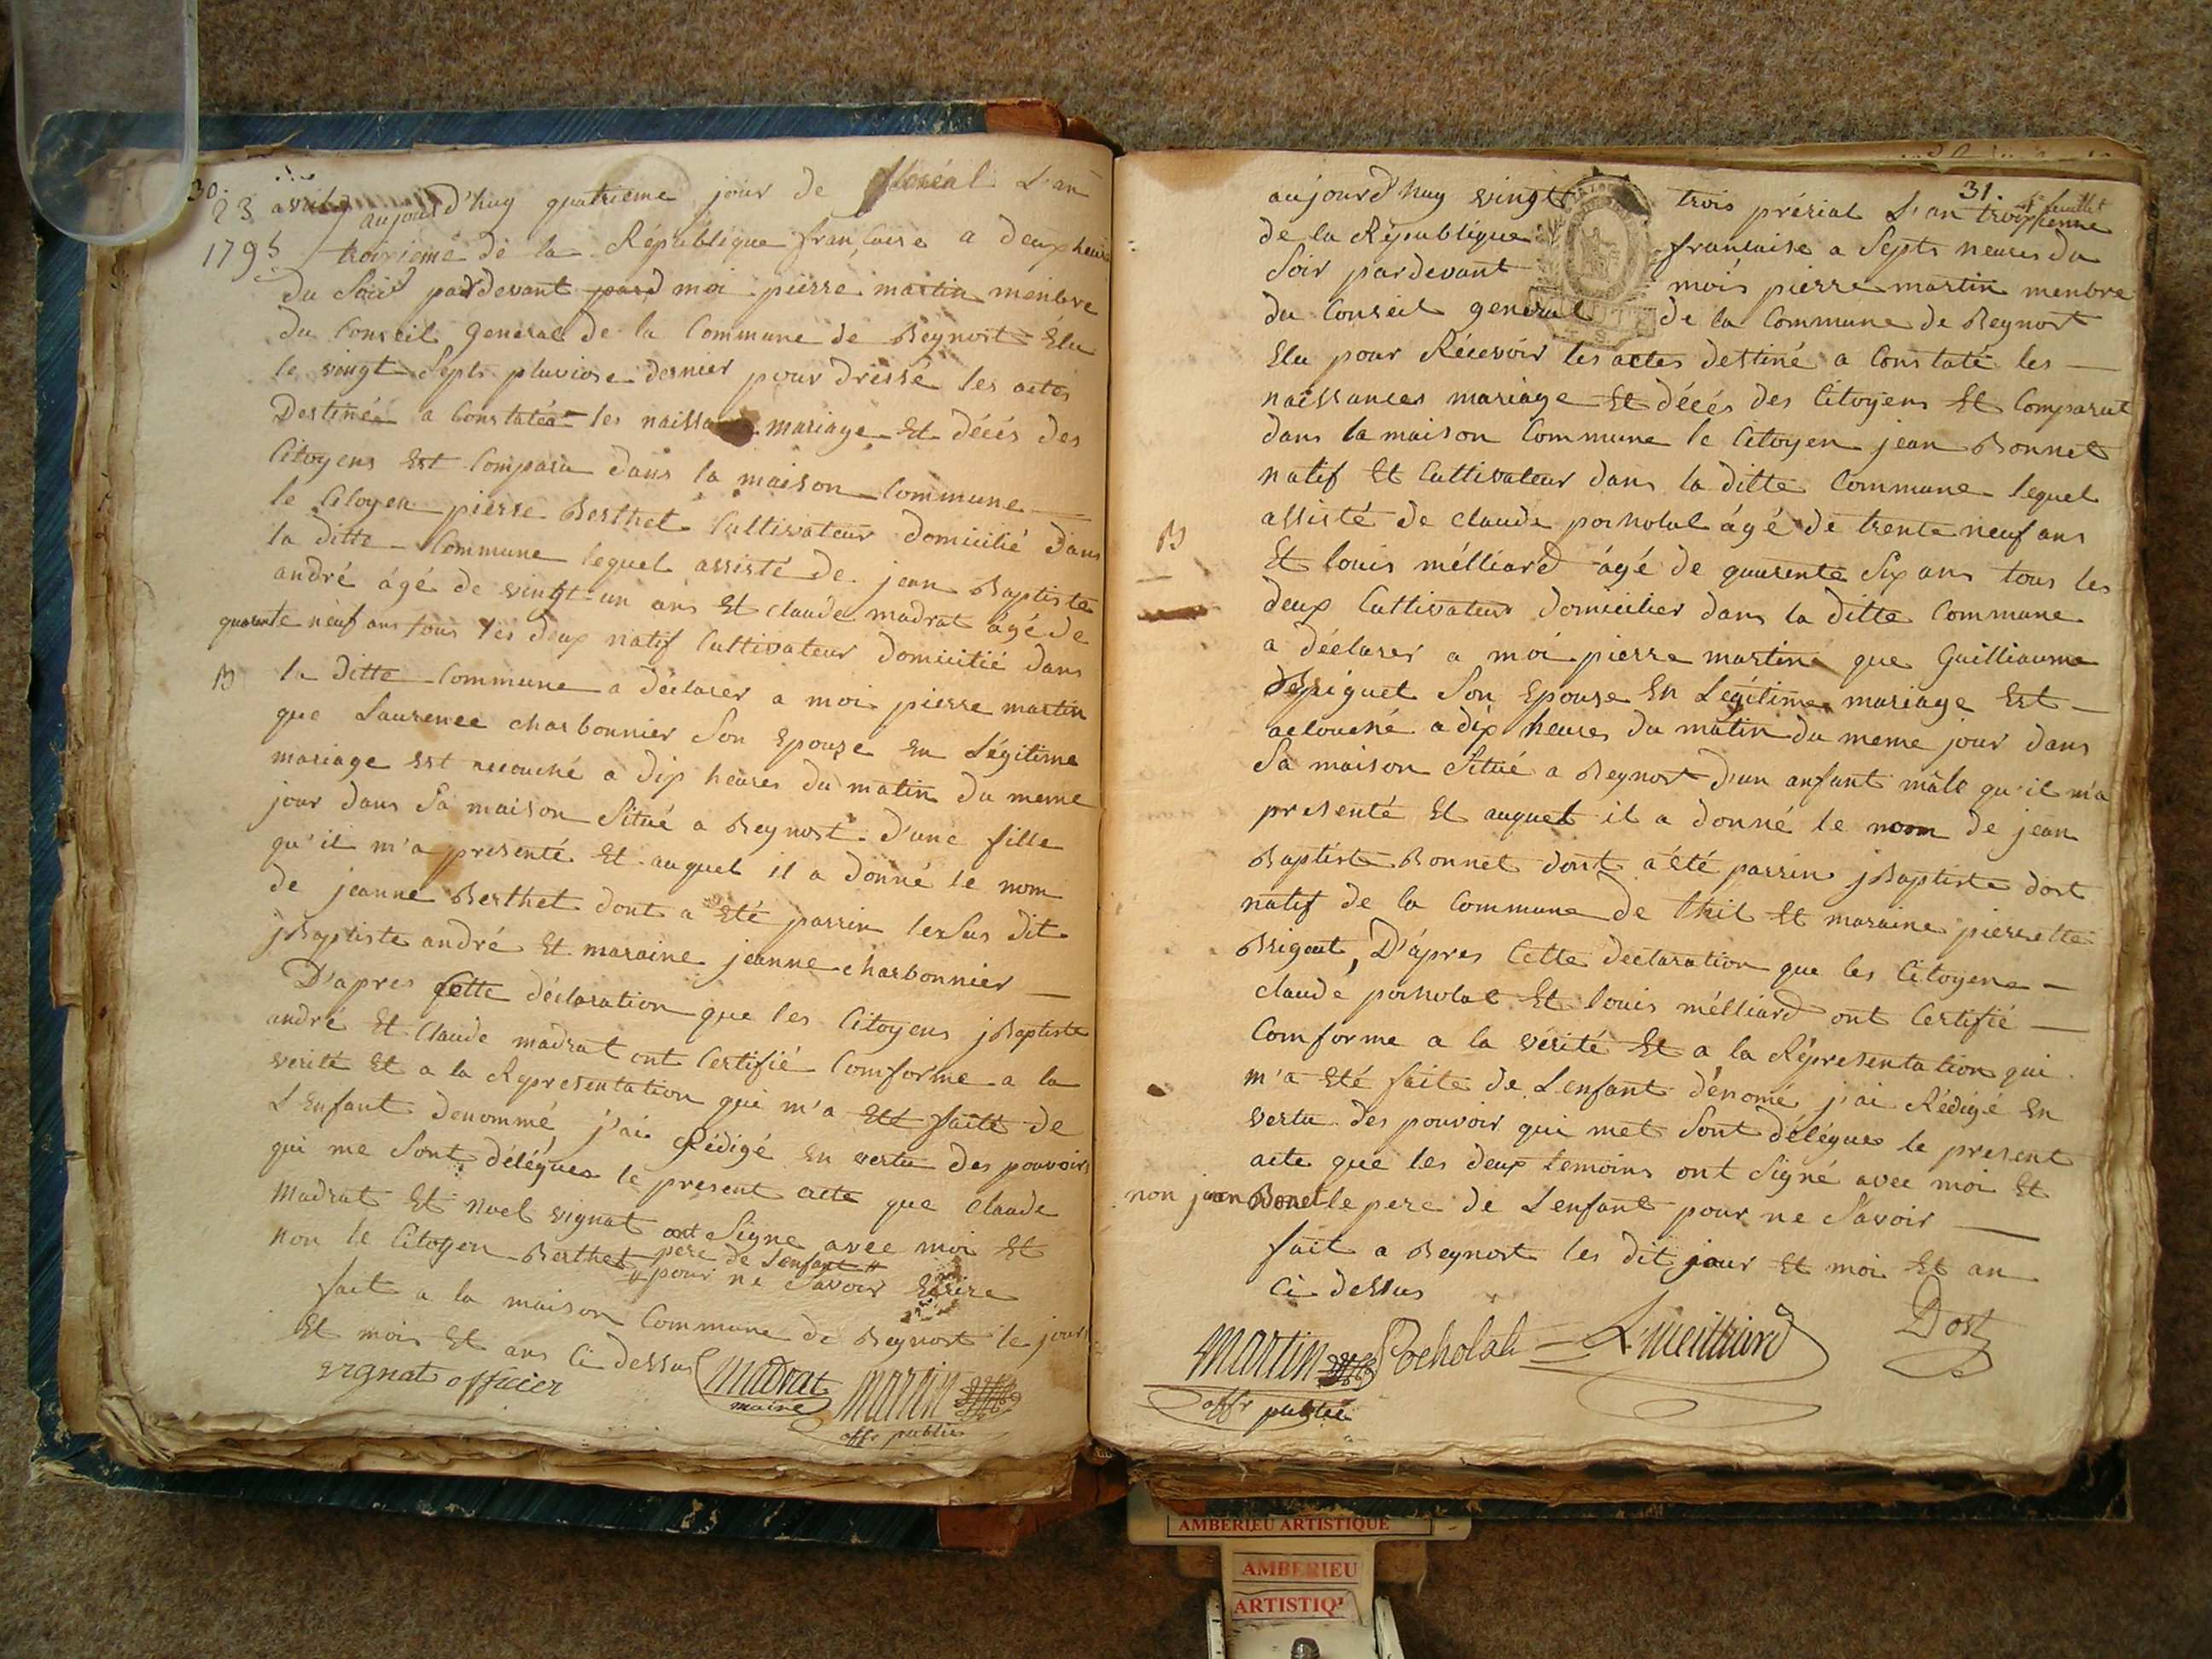 30.
23 avril
1795
aujourd'huy quatrieme jour de floréal L'an
troisieme de la République française a deux heures
du Soir pardevant pard moi pierre martin menbre
du Conseil general de la Commune de Beynost Elu
le vingt Sept pluviose dernier pour dressé les actes
Destinés a Constatéa les naissances mariage Et décés des
Citoyens Est Comparu dans la maison Commune
le Citoyen pierre Berthet Cultivateur domicilié dans
la ditte Commune lequel assisté de jean Baptiste
andré ágé de vingt un ans Et claude madrat ágé de
quarente neuf ans tous les deux natif Cultivateur domicilié dans
B la ditte Commune a déclarer a moi pierre martin
que Laurence charbonnier Son Epouze en Légitime
mariage est accouché a dix heures du matin du meme
jour dans Sa maison Situé a Beynost d'une fille
qu'il m'a presenté Et auquel il a donné le nom
de jeanne Berthet dont a Eté parrin le Sus dit
jBaptiste andré Et maraine jeanne charbonnier
D'apres Cette déclaration que les Citoyens jBaptiste
andré Et Claude madrat ont Certifié Comforme a la
verité Et a la Representation qui m'a Eté faite de
L'Enfant denommé j'ai Rédigé en vertu des pouvoirs
qui me Sont délégues le present acte que Claude
Madrat Et noel vignat ont Signe avec moi Et
non le Citoyen Berthet pere de L'enfant
pour ne Savoir Ecrire
fait a la maison Commune de Beynost le jour
Et mois Et ans Ci dessus
vignat officier Madrat maire martin
offr public
31.
feuillet
aujourd'huy vingt trois prérial L'an troisieme
de la République francaise a Septs heures du
Soir pardevant mois pierre martin menbre
du Conseil general de la Commune de Beynost
Elu pour Récevoir les actes destiné a Constaté les
naissances mariage Et décés des Citoyens Et Comparut
dans la maison Commune le Citoyen jean Bonnet
natif Et Cultivateur dans la ditte Commune lequel
assisté de claude pocholat ágé de trente neuf ans
B
Et louis mélliard ágé de quarente Six ans tous les
deux Cultivateur domicilier dans la ditte Commune
a déclarer a moi pierre martin que Guilliaume
Despiguet Son Epouze En Légitime mariage Est
acCouché a dix heures du matin du meme jour dans
Sa maison Situé a Beynost d'un anfant mâle qu'il m'a
presenté Et auquel il a donné le nom de jean
Baptiste Bonnet dont a été parrin jBaptiste dost
natif de la Commune de thil Et maraine pierrette
Brigout, D'ápres Cette declaration que les Citoyens
claude pocholat Et louis mélliard ont Certifié
Comforme a la vérité Et a la Répresentation qui
m'a Eté faite de L'enfant dénomé j'ai Rédigé En
vertu des pouvoir qui met Sont délégues le present
acte que les deux temoins ont Signé avec moi Et
non jean Bonet le pere de L'enfant pour ne Savoir
fait a Beynost les dit jour Et moi Et an
Ci dessus
Martin Pocholat L. meilliard Dost
offr public
AMBERIEU ARTISTIQUE
AMBERIEU
ARTISTIQ'